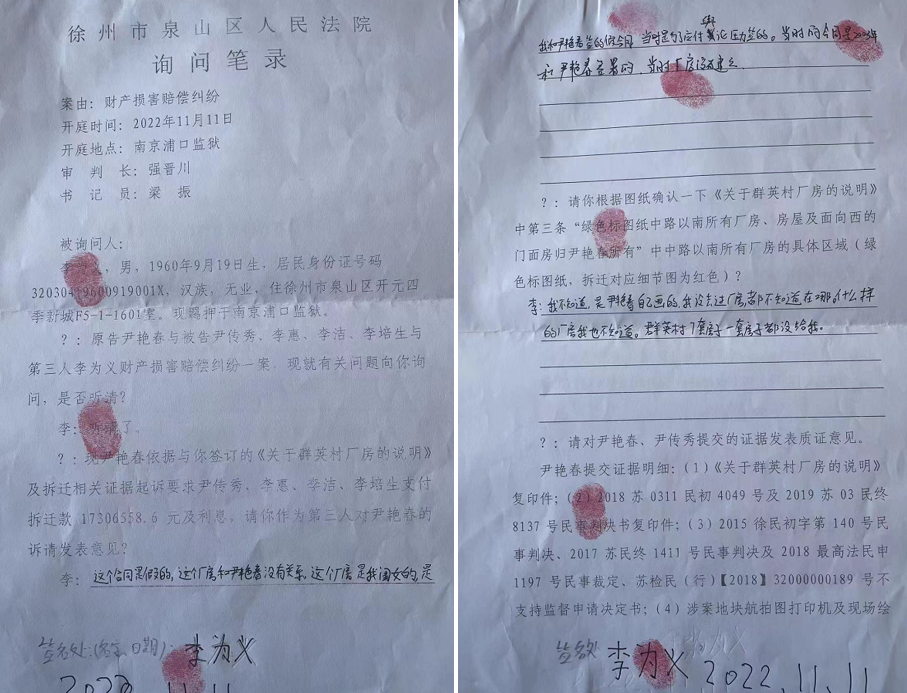 徐州市泉山区人民法院
询问笔录
案由：财产损害赔偿纠纷
开庭时间：2022年11月11日
开庭地点：南京浦口监狱
审 判 长：强晋川
书 记 员：梁 振
被询问人：
李，男，1960年9月19日生，居民身份证号码
32030419600919001X，汉族，无业，住徐州市泉山区开元四
季新城F5-1-1601室。现羁押于南京浦口监狱。
？：原告尹艳春与被告尹传秀、李惠、李洁、李培生与
第三人李为义财产损害赔偿纠纷一案，现就有关问题向你询
问，是否听清？
李：听清了。
？：现尹艳春依据与你签订的《关于群英村厂房的说明》
及拆迁相关证据起诉要求尹传秀、李惠、李洁、李培生支付
拆迁款 17306558.6 元及利息，请你作为第三人对尹艳春的
诉请发表意见？
李：这个合同是假的，这个厂房和尹艳春没有关系，这个厂房是我闺女的，是
签名处：(签字、日期)：李为义
2022 11.11
我和尹艳春签的假合同，当时是为了应付舆论压力签的。当时的合同是
和尹艳春签署的，当时厂房没建
？：请你根据图纸确认一下《关于群英村厂房的说明》
中第三条“绿色标图纸中路以南所有厂房、房屋及面向西的
门面房归尹艳春所有”中中路以南所有厂房的具体区域（绿
色标图纸，拆迁对应细节图为红色）？
李：我不知道，是尹艳春自己画的，我没去过厂房，都不知道在哪，什么样
的厂房我也不知道。群英村7套房子一套房子都没给我。
？：请对尹艳春、尹传秀提交的证据发表质证意见。
尹艳春提交证据明细：（1）《关于群英村厂房的说明》
复印件；（2）2018 苏 0311 民初 4049 号及 2019 苏 03 民终
8137 号民事判决书复印件；（3）2015 徐民初字第 140 号民
事判决、2017 苏民终 1411 号民事判决及 2018 最高法民申
1197 号民事裁定、苏检民（行）【2018】32000000189 号不
支持监督申请决定书；（4）涉案地块航拍图打印机及现场绘
签名处 李为义 2022.11.11